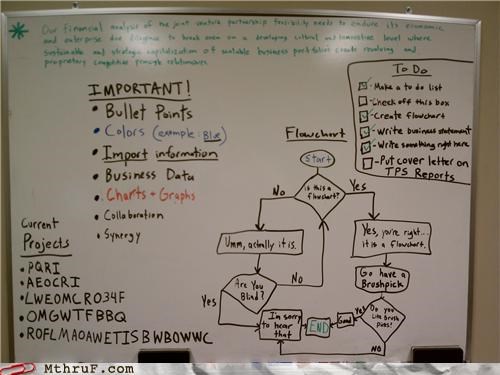 * Our financial analysis of the joint venture partnership feasibility needs to endure its economic
and enterprise due diligence to break even on a developing cultural and innovative level where
sustainable and strategic capitalization of scalable business portfolios create revolving and
proprietary competitive principle relationships.
IMPORTANT!
• Bullet Points
• Colors (example: Blue)
• Import information
• Business Data
• Charts + Graphs
• Collaboration
• Synergy
Current
Projects
• PQRI
• AEOCRI
• LWEOMCRO34F
• OMGWTFBBQ
• ROFLMAOAWETISBWBOWWC
To Do
Make a to do list
Check off this box
Create flowchart
Write business statement
Write something right here
Put cover letter on
TPS Reports
Flowchart
Start
is this a
flowchart?
No
Yes
Umm, actually it is.
Yes, you're right...
it is a flowchart.
Are You
Blind?
No
Yes
Go have a
Brushpick
Do you
like Brush
picks?
Yes
No
Good
END
I'm sorry
to hear
that
MthruF.com